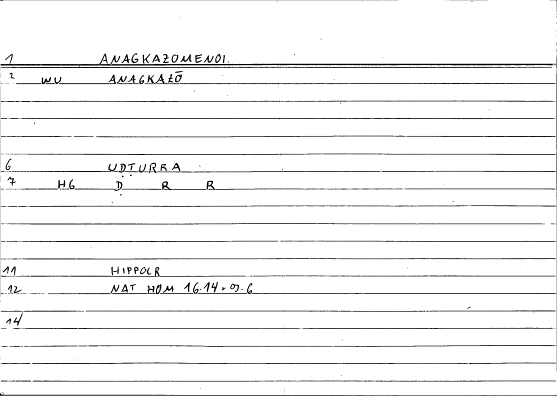 1 ANAGKAZOMENOI.
2 WU ANAGKAZŌ
6 UDTURRA
7 HG Ḍ R R
11 HIPPOCR
12 NAT HOM 16.14
14